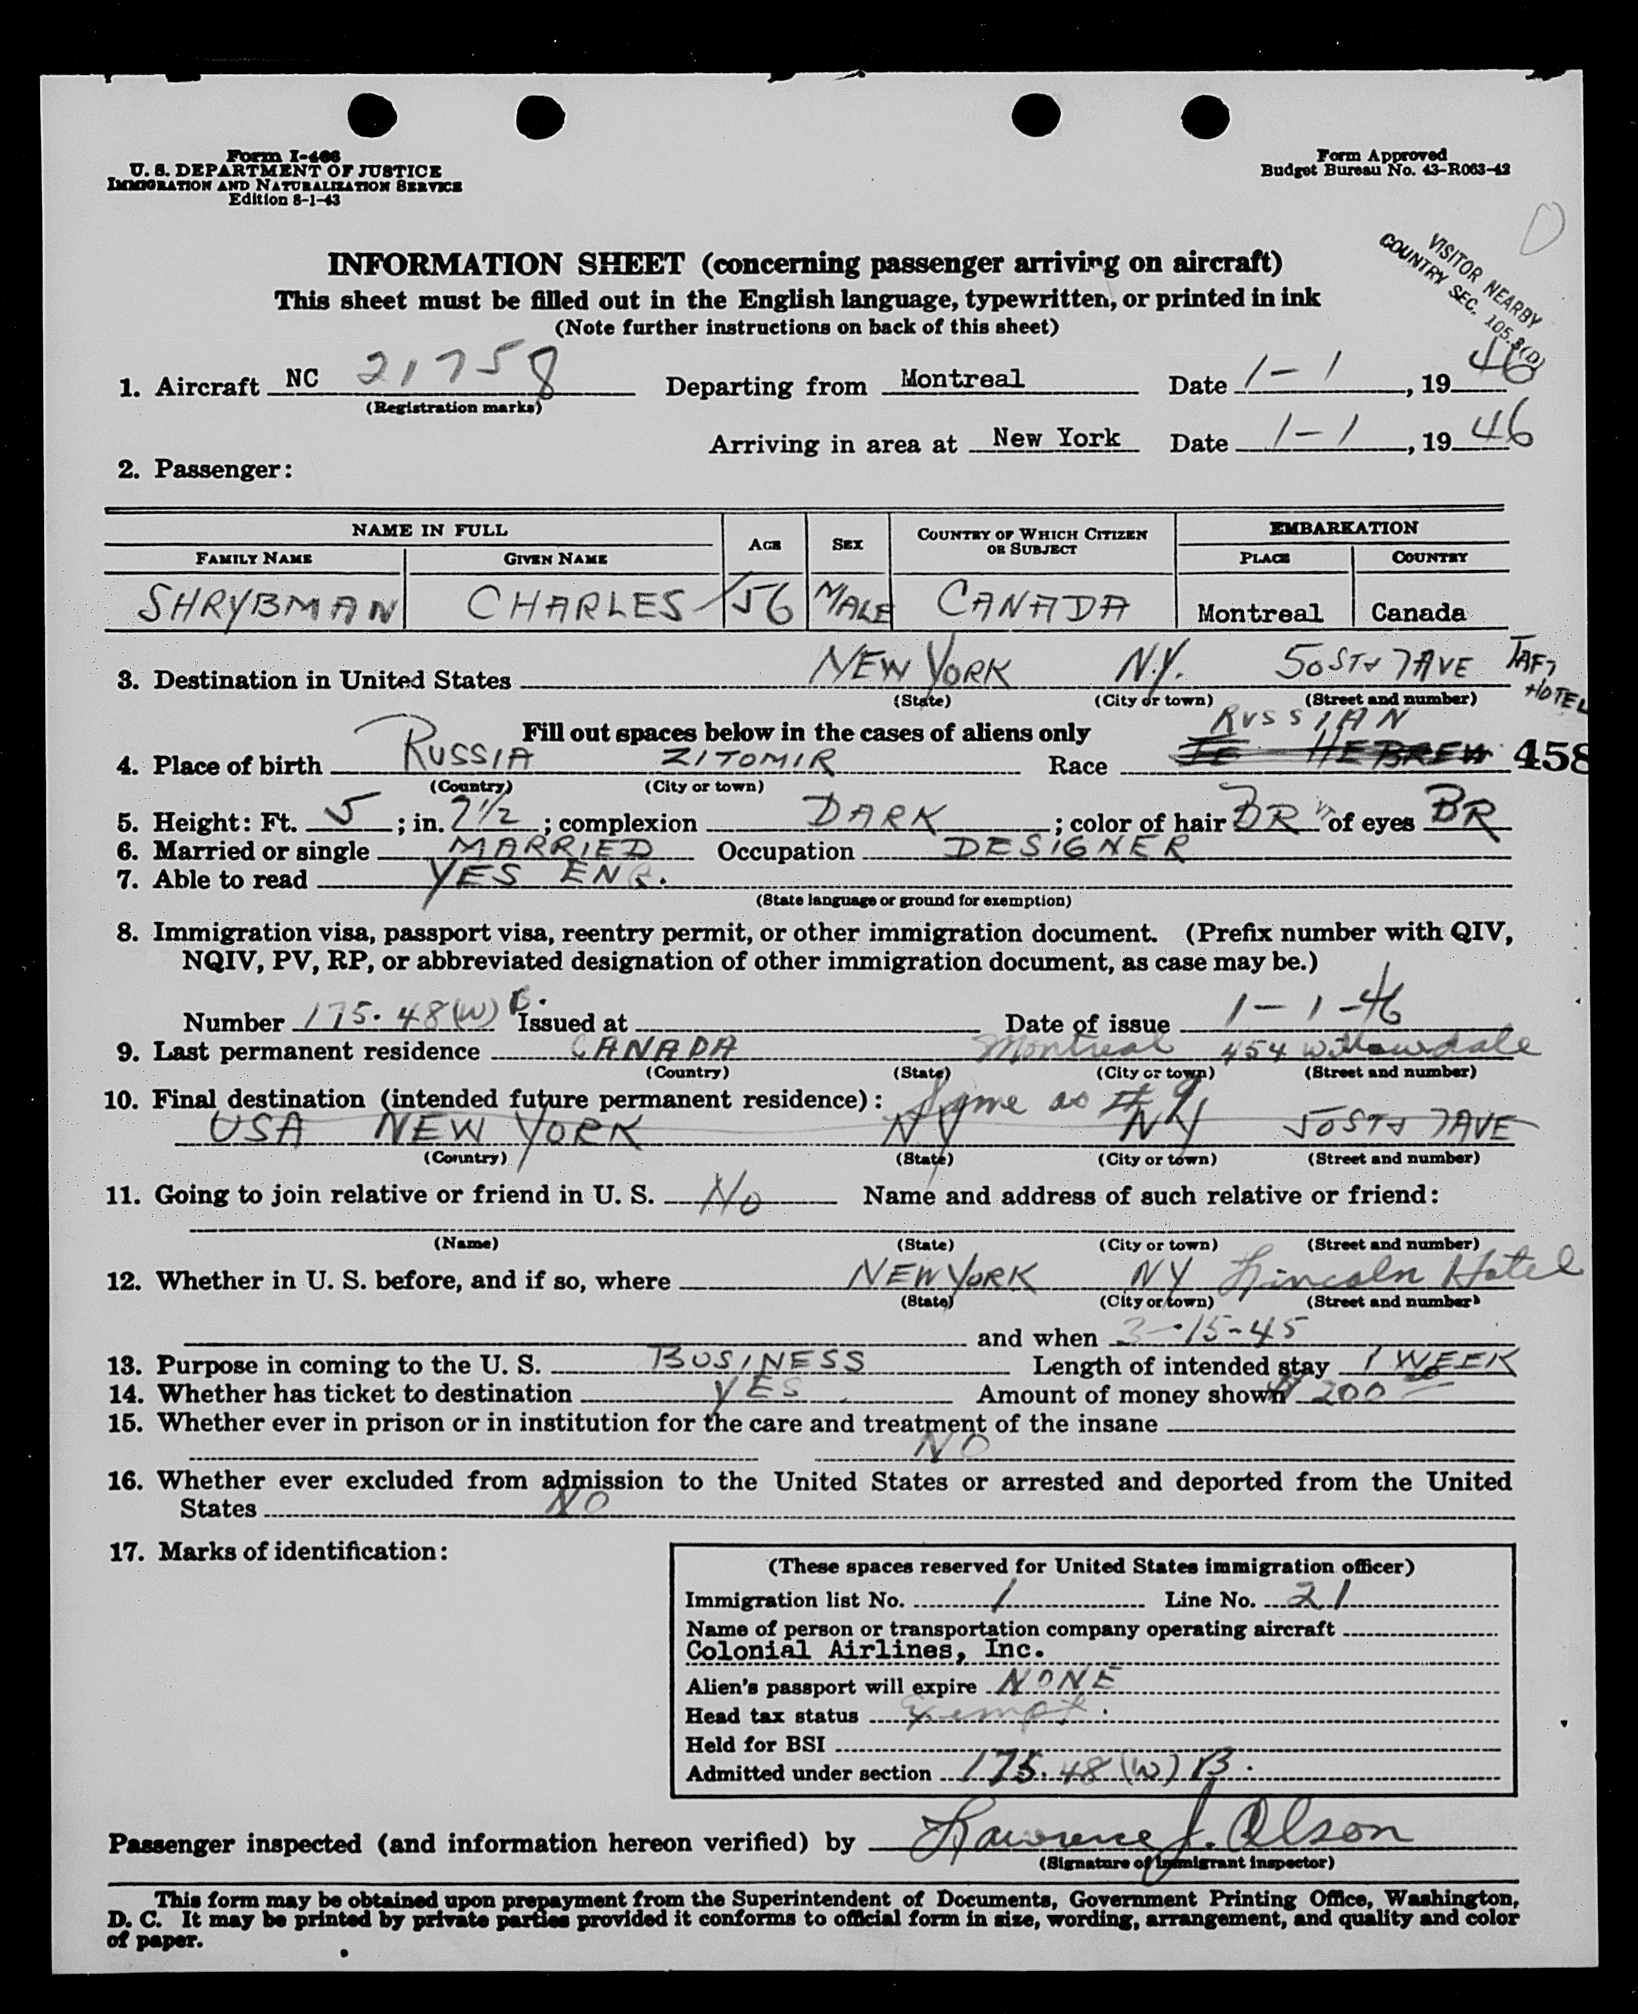 Form I-466
U. S. DEPARTMENT OF JUSTICE
IMMIGRATION AND NATURALIZATION SERVICE
Edition 8-1-43
Form Approved
Budget Bureau No. 43-R063-42
D
VISITOR NEARBY
COUNTRY SEC. 105.3(D)
INFORMATION SHEET (concerning passenger arriving on aircraft)
This sheet must be filled out in the English language, typewritten, or printed in ink
(Note further instructions on back of this sheet)
1. Aircraft NC 21758 Departing from Montreal Date 1-1, 19 46
(Registration marks)
Arriving in area at New York Date 1-1, 19 46
2. Passenger:
NAME IN FULL AGE SEX COUNTRY OF WHICH CITIZEN OR SUBJECT EMBARKATION
FAMILY NAME GIVEN NAME PLACE COUNTRY
SHRYBMAN CHARLES 56 MALE CANADA Montreal Canada
3. Destination in United States NEW YORK N.Y. 50ST & 7AVE TAFT HOTEL
(State) (City or town) (Street and number)
Fill out spaces below in the cases of aliens only RUSSIAN
4. Place of birth RUSSIA ZITOMIR Race HEBREW 458
(Country) (City or town)
5. Height: Ft. 5; in. 7 1/2; complexion DARK; color of hair BR of eyes BR
6. Married or single MARRIED Occupation DESIGNER
7. Able to read YES ENG.
(State language or ground for exemption)
8. Immigration visa, passport visa, reentry permit, or other immigration document. (Prefix number with QIV,
NQIV, PV, RP, or abbreviated designation of other immigration document, as case may be.)
Number 175.48(W) B. Issued at Date of issue 1-1-46
9. Last permanent residence CANADA Montreal 454 Willowdale
(Country) (State) (City or town) (Street and number)
10. Final destination (intended future permanent residence): Same as # 9
USA NEW YORK NY NY 50ST & 7AVE
(Country) (State) (City or town) (Street and number)
11. Going to join relative or friend in U. S. No Name and address of such relative or friend:
(Name) (State) (City or town) (Street and number)
12. Whether in U. S. before, and if so, where NEW YORK NY Lincoln Hotel
(State) (City or town) (Street and number)
and when 3-15-45
13. Purpose in coming to the U. S. BUSINESS Length of intended stay 1 WEEK
14. Whether has ticket to destination YES Amount of money shown $200
15. Whether ever in prison or in institution for the care and treatment of the insane
NO
16. Whether ever excluded from admission to the United States or arrested and deported from the United
States NO
17. Marks of identification:
(These spaces reserved for United States immigration officer)
Immigration list No. 1 Line No. 21
Name of person or transportation company operating aircraft
Colonial Airlines, Inc.
Alien's passport will expire NONE
Head tax status Exempt.
Held for BSI
Admitted under section 175.48(W) B.
Passenger inspected (and information hereon verified) by Lawrence J. Olson
(Signature of immigrant inspector)
This form may be obtained upon prepayment from the Superintendent of Documents, Government Printing Office, Washington,
D. C. It may be printed by private parties provided it conforms to official form in size, wording, arrangement, and quality and color
of paper.